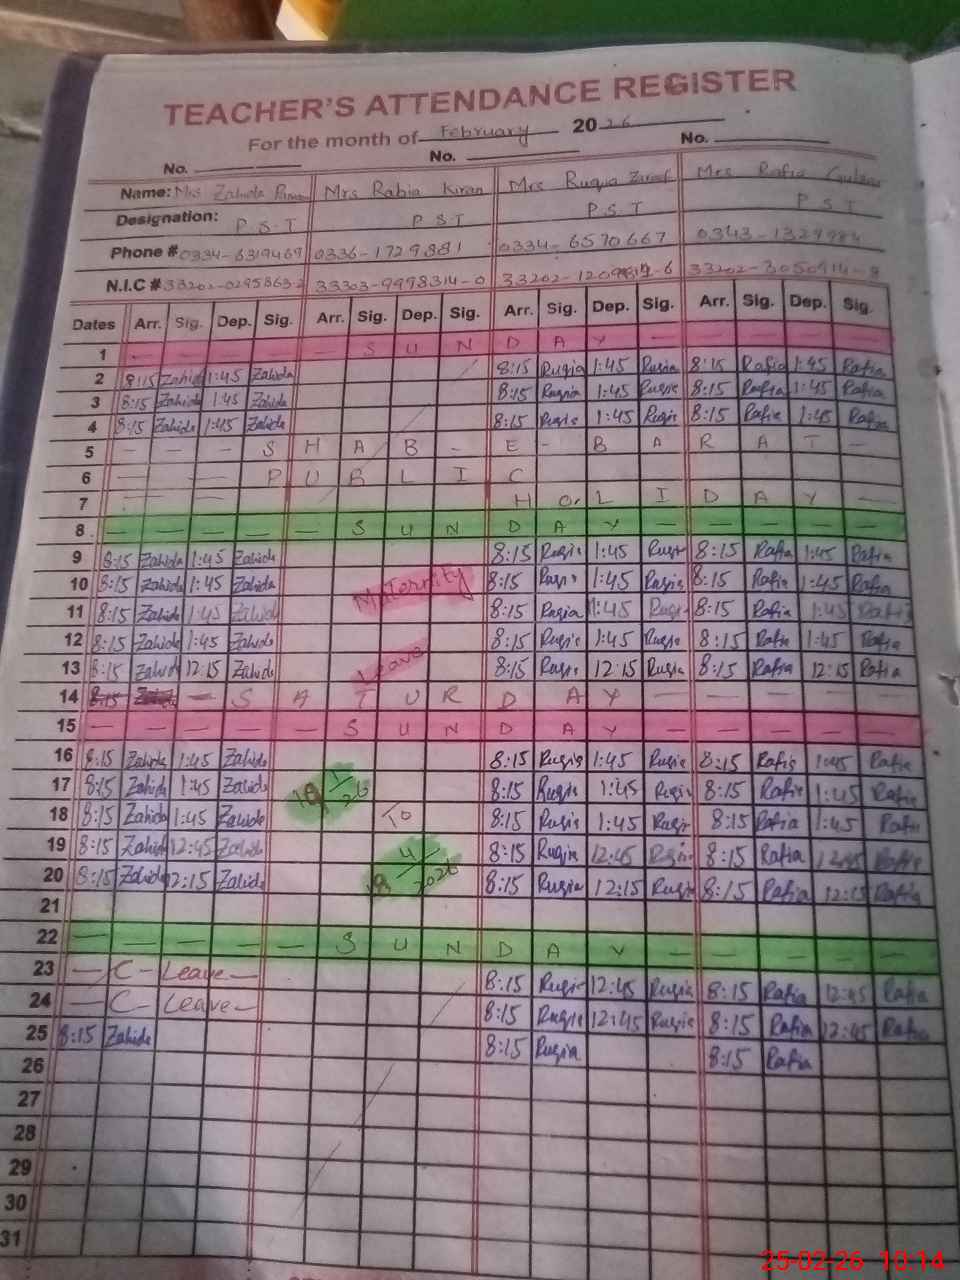 TEACHER'S ATTENDANCE REGISTER
For the month of February 2026
No. No. No.
Name: Mrs Zahida Mrs Rabia Kiran Mrs Ruqia Mrs Rafia
Designation: P.S.T P.S.T P.S.T P S T
Phone # 0334-6319469 0336-1729881 0334-6570667 0343-1329984
N.I.C # 33303-9998314-0
Dates Arr. Sig. Dep. Sig. Arr. Sig. Dep. Sig. Arr. Sig. Dep. Sig. Arr. Sig. Dep. Sig.
1 — — — — — S U N D A Y —
2 8:15 Zahida 1:45 Zahida 8:15 Ruqia 1:45 Ruqia 8:15 Rafia 1:45 Rafia
3 8:15 Zahida 1:45 Zahida 8:15 Ruqia 1:45 Ruqia 8:15 Rafia 1:45 Rafia
4 8:15 Zahida 1:45 Zahida 8:15 Ruqia 1:45 Ruqia 8:15 Rafia 1:45 Rafia
5 — — — S H A B - E - B A R A T —
6 — — — P U B L I C
7 — — H O L I D A Y —
8 — — — — — S U N D A Y — — — — —
9 8:15 Zahida 1:45 Zahida 8:15 Ruqia 1:45 Ruqia 8:15 Rafia 1:45 Rafia
10 8:15 Zahida 1:45 Zahida Maternity 8:15 Ruqia 1:45 Ruqia 8:15 Rafia 1:45 Rafia
11 8:15 Zahida 1:45 Zahida 8:15 Ruqia 1:45 Ruqia 8:15 Rafia 1:45 Rafia
12 8:15 Zahida 1:45 Zahida 8:15 Ruqia 1:45 Ruqia 8:15 Rafia 1:45 Rafia
13 8:15 Zahida 12:15 Zahida Leave 8:15 Ruqia 12:15 Ruqia 8:15 Rafia 12:15 Rafia
14 8:15 — S A T U R D A Y — — — — —
15 — — — — — S U N D A Y — — — — —
16 8:15 Zahida 1:45 Zahida 8:15 Ruqia 1:45 Ruqia 8:15 Rafia 1:45 Rafia
17 8:15 Zahida 1:45 Zahida 8:15 Ruqia 1:45 Ruqia 8:15 Rafia 1:45 Rafia
18 8:15 Zahida 1:45 Zahida To 8:15 Ruqia 1:45 Ruqia 8:15 Rafia 1:45 Rafia
19 8:15 Zahida 12:45 Zahida 8:15 Ruqia 12:45 Ruqia 8:15 Rafia 12:45 Rafia
20 8:15 Zahida 12:15 Zahida 8:15 Ruqia 12:15 Ruqia 8:15 Rafia 12:15 Rafia
21
22 — — — — — S U N D A Y — — — — —
23 — C - Leave — 8:15 Ruqia 12:45 Ruqia 8:15 Rafia 12:45 Rafia
24 — C - Leave — 8:15 Ruqia 12:45 Ruqia 8:15 Rafia 12:45 Rafia
25 8:15 Zahida 8:15 Ruqia 8:15 Rafia
26
27
28
29
30
31
25-02-26 10:14